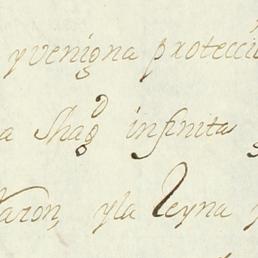 y venigna protecci
a infinita
Varon, y la Reyna